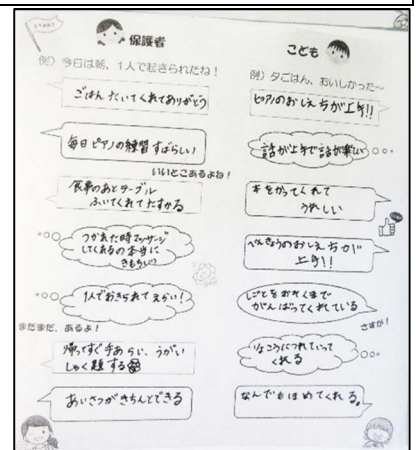 START
保護者
例）今日は朝、1人で起きられたね！
ごはんたいてくれてありがとう
毎日ピアノの練習すばらしい
いいとこあるよね！
食事のあとテーブル
ふいてくれてたすかる
つかれた時マッサージ
してくれるの本当に
きもちいい
1人でおきられてえらい！
まだまだ、あるよ！
帰ってすぐ手あらい、うがい
しゅく題する
あいさつがきちんとできる
こども
例）夕ごはん、おいしかった～
ピアノのおしえちが上手!!
話が上手で話が楽しい
本をかってくれて
うれしい
べんきょうのおしえちが
上手!!
しごとをおそくまで
がんばってくれている
さすが！
りょこうにつれていって
くれる
なんでもほめてくれる。